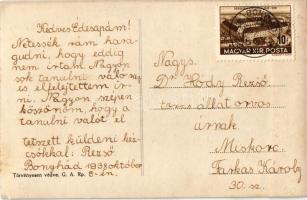 Kedves Édesapám!
Netessék rám hara-
gudni, hogy eddig
nem írtam. Nagyon
sok tanulni valóm
és elfelejtettem ír-
ni. Nagyon szépen
köszönöm, hogy a
tanulni valót el
tetszett küldeni kéz-
csókkal: Rezső
Bonyhád 1938 október
8-én.
Törvényesen védve. G. A. Rp.
MAGYAR KIR. POSTA
10
Nagys.
Dr. Hódy Rezső
törzsállatorvos
úrnak.
Miskolc.
Farkas Károly
30. sz.